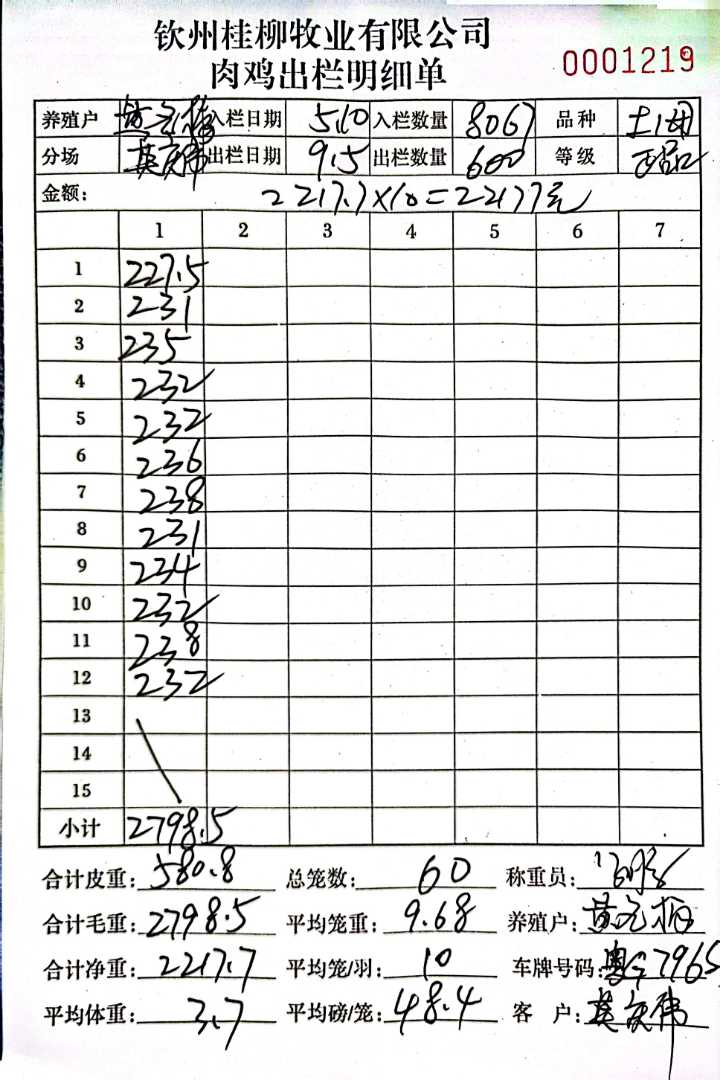 钦州桂柳牧业有限公司
肉鸡出栏明细单
0001219
养殖户 黄元梅 入栏日期 5.10 入栏数量 8067 品种 土2
分场 出栏日期 9.5 出栏数量 600 等级
金额: 2217.7×10=22177元
1 2 3 4 5 6 7
1 227.5
2 231
3 235
4 232
5 232
6 236
7 238
8 231
9 234
10 232
11 238
12 232
13
14
15
小计 2798.5
合计皮重: 580.8 总笼数: 60 称重员:
合计毛重: 2798.5 平均笼重: 9.68 养殖户:
合计净重: 2217.7 平均笼/羽: 10 车牌号码: 7965
平均体重: 3.7 平均磅/笼: 48.4 客户: